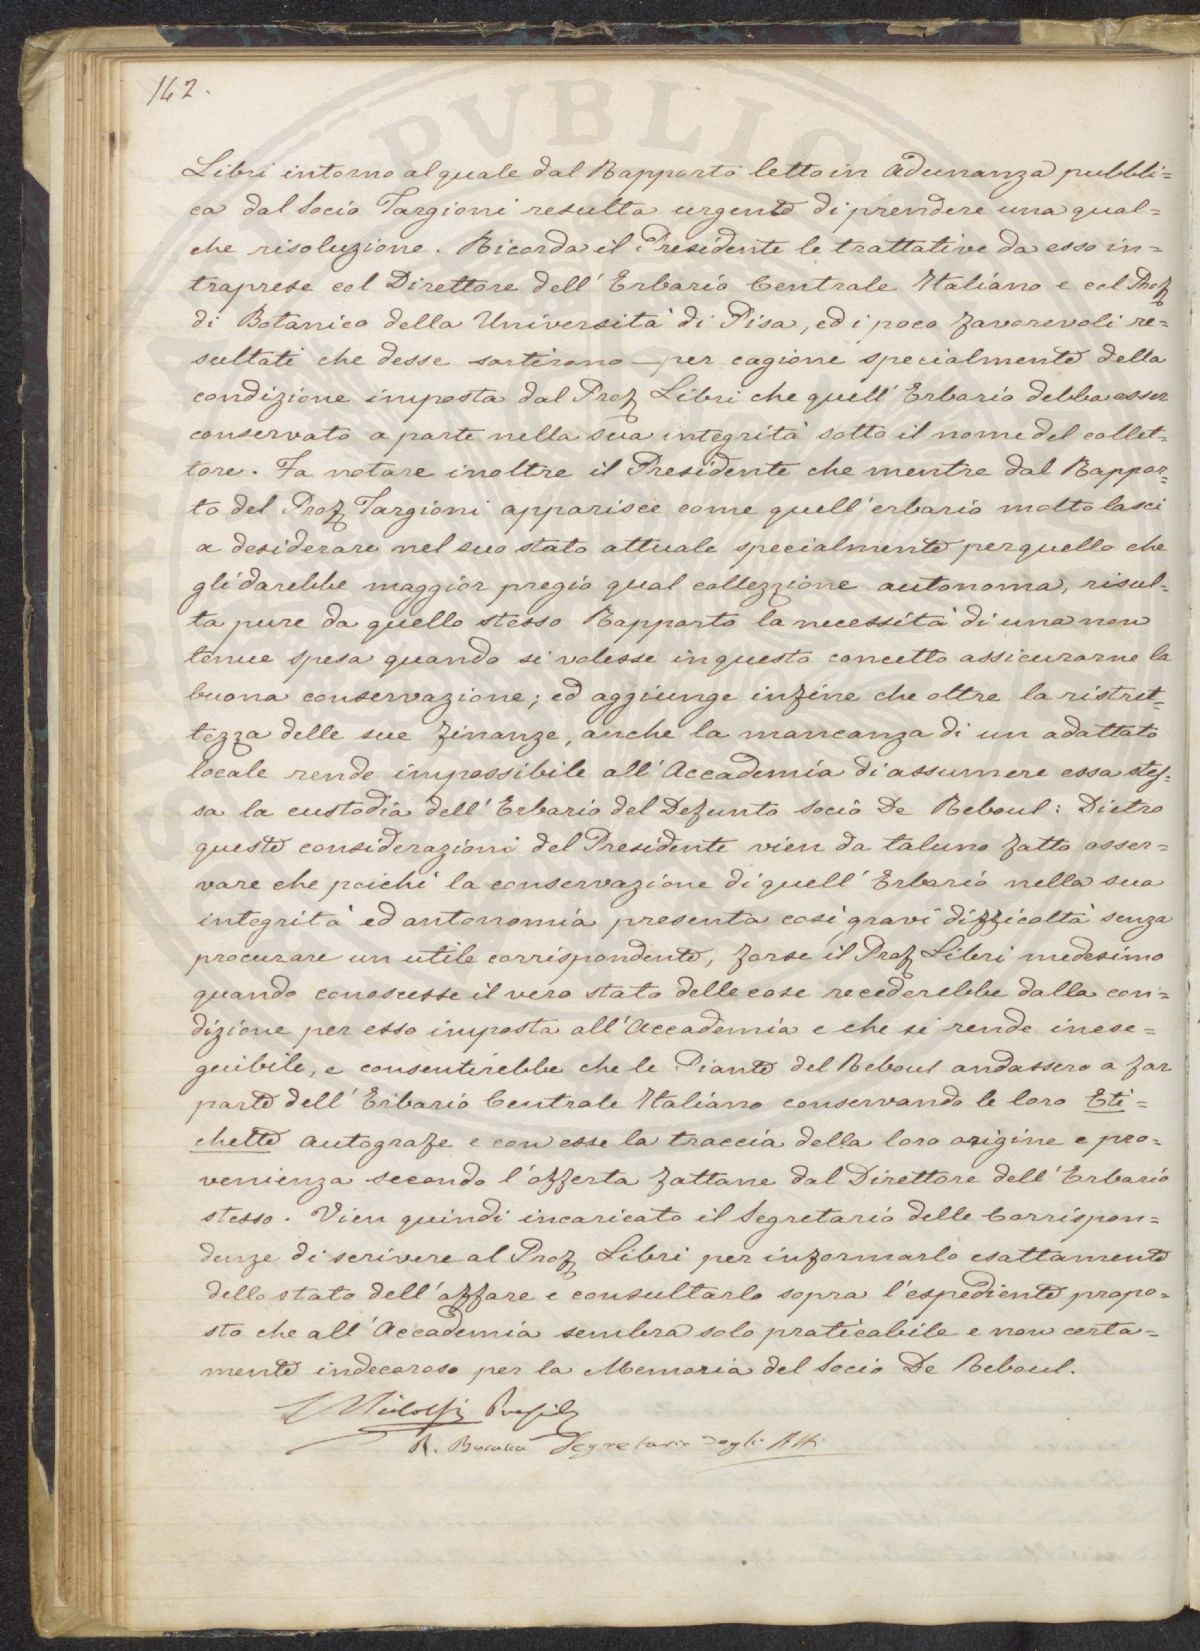 142.
Libri intorno al quale dal Rapporto letto in Adunanza pubbli=
ca dal Socio Targioni resulta urgente di prendere una qual=
che risoluzione. Ricorda il Presidente le trattative da esso in=
traprese col Direttore dell'Erbario Centrale Italiano e col Prof
di Botanico della Università di Pisa, ed i poco favorevoli re=
sultati che desse sortirono per cagione specialmente della
condizione imposta dal Prof Libri che quell'Erbario debba esser
conservato a parte nella sua integrità sotto il nome del collet=
tore. Fa notare inoltre il Presidente che mentre dal Rappor=
to del Prof Targioni apparisce come quell'erbario molto lasci
a desiderare nel suo stato attuale specialmente per quello che
gli darebbe maggior pregio qual collezzione autonoma, risul=
ta pure da quello stesso Rapporto la necessità di una non
tenue spesa quando si volesse in questo concetto assicurarne la
buona conservazione; ed aggiunge infine che oltre la ristret=
tezza delle sue finanze, anche la mancanza di un adattato
locale rende impossibile all'Accademia di assumere essa stes=
sa la custodia dell'Erbario del Defunto socio De Reboul: Dietro
queste considerazioni del Presidente vien da taluno fatto osser=
vare che poichè la conservazione di quell'Erbario nella sua
integrità ed autonomia presenta così gravi difficoltà senza
procurare un utile corrispondente, forse il Prof Libri medesimo
quando conoscesse il vero stato delle cose recederebbe dalla con=
dizione per esso imposta all'Accademia e che si rende inese=
guibile, e consentirebbe che le Piante del Reboul andassero a far
parte dell'Erbario Centrale Italiano conservando le loro Eti=
chette autografe e con esse la traccia della loro origine e pro=
venienza secondo l'offerta fattane dal Direttore dell'Erbario
stesso. Vien quindi incaricato il Segretario delle Corrispon=
denze di scrivere al Prof Libri per informarlo esattamente
dello stato dell'affare e consultarlo sopra l'espediente propo=
sto che all'Accademia sembra solo praticabile e non certa=
mente indecoroso per la Memoria del Socio De Reboul.
Ridolfi
R. Segretario degli Atti
PVBLIC